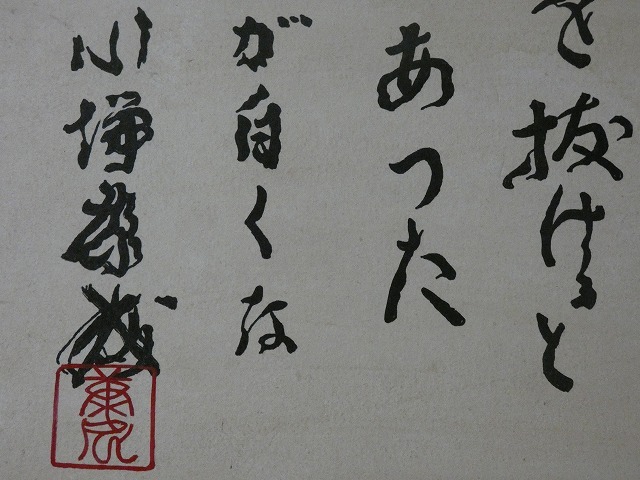 を抜けると
あつた
が白くな
川端康成
康成